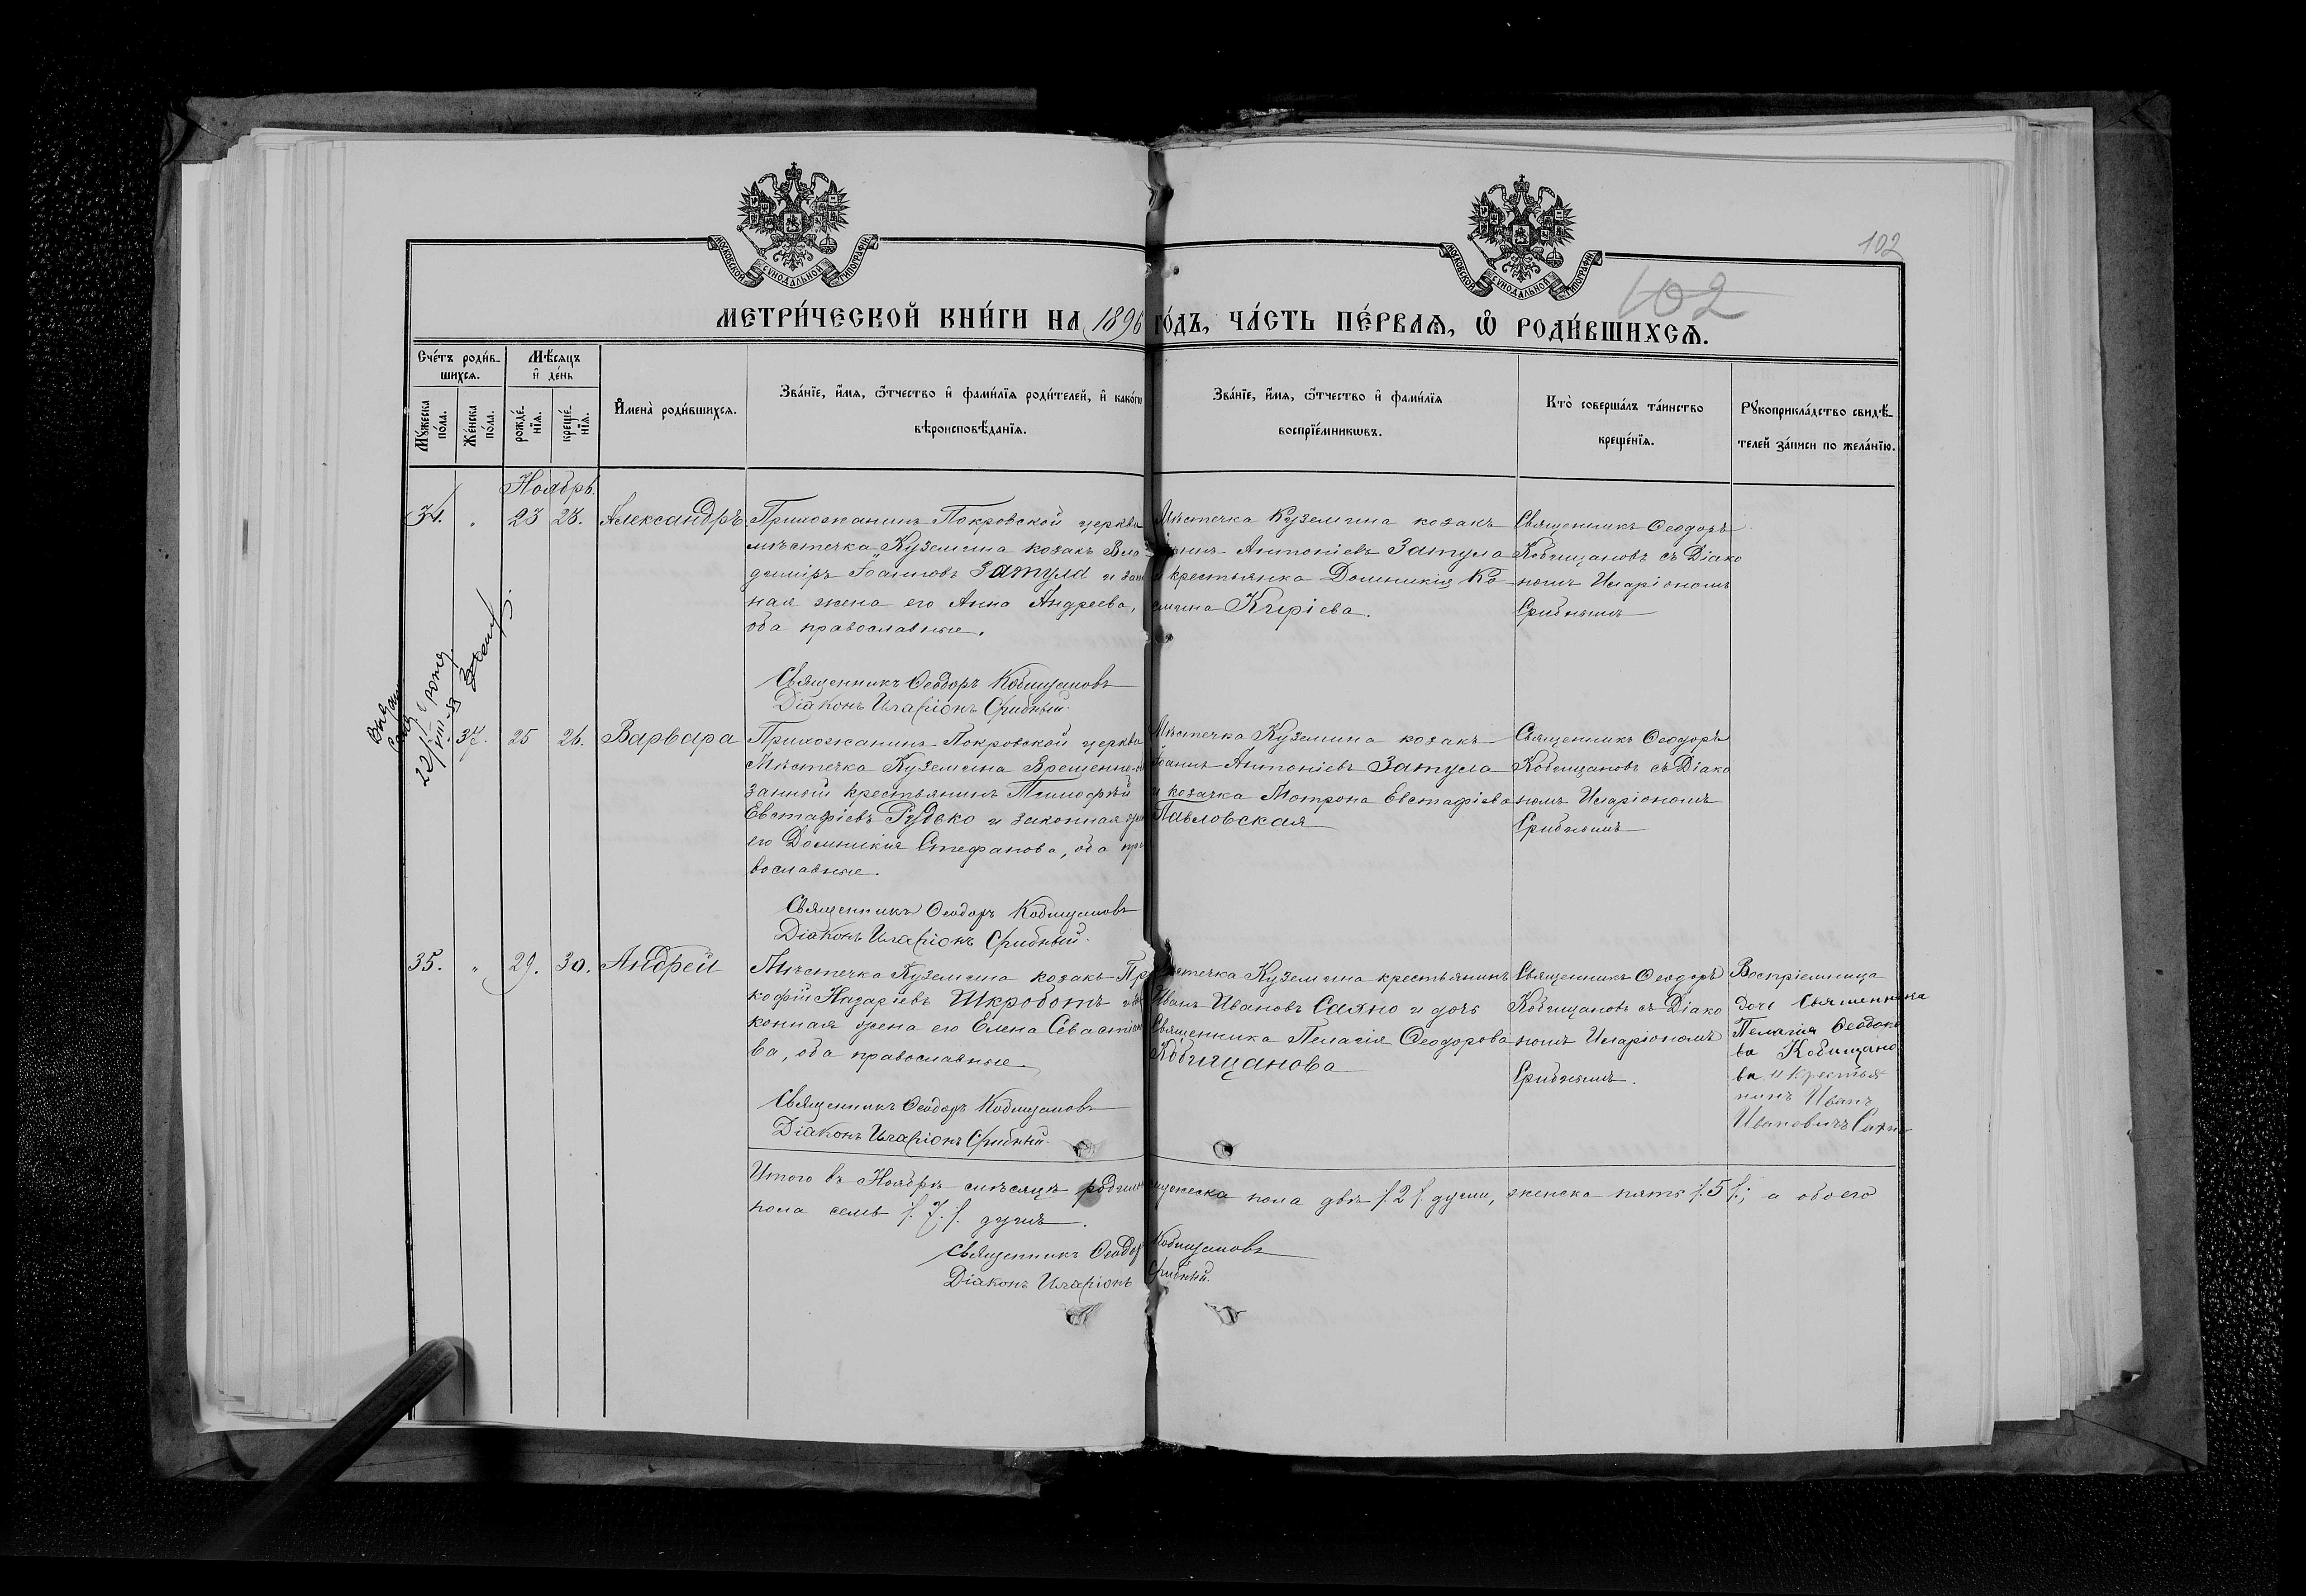 МОСКОВСКОЙ СѴНОДАЛЬНОЙ ТИПОГРАФІИ
МОСКОВСКОЙ СѴНОДАЛЬНОЙ ТИПОГРАФІИ
102
102
МЕТРИ́ЧЕСКОЙ КНИ́ГИ НА 1896 ГО́ДЪ, ЧА́СТЬ ПЕ́РВАѦ, Ѡ РОДИ́ВШИХСѦ.
Сче́тъ роди́вшихсѧ.
Мꙋ́жеска по́ла.
Же́нска по́ла.
Мѣ́сѧцъ и де́нь
рожде́нїѧ.
креще́нїѧ.
Имена̀ роди́вшихсѧ.
Зва́нїе, и́мѧ, ѻ́тчество и фами́лїѧ роди́телей, и како́гѡ
вѣроисповѣ́данїѧ.
Зва́нїе, и́мѧ, ѻ́тчество и фами́лїѧ
воспрїе́мникѡвъ.
Кто̀ соверша́лъ та́инство
креще́нїѧ.
Рꙋкоприкла́дство свидѣ́-
телей за́писи по жела́нїю.
Ноябрь.
34. " 23 25. Александръ
Прихожанинъ Покровской церкви
мѣстечка Куземина козакъ Вла
димiръ Iоанновъ Затула и зако
ная жена его Анна Андреева,
оба православные.
Священникъ Ѳеодоръ Кобищановъ
Дiаконъ Иларiонъ Срибный.
Мѣстечка Куземина козакъ
Антонiевъ Затула
и крестьянка Домникiя
Кирiева.
Священникъ Ѳеодоръ
Кобищановъ съ Дiако
номъ Иларiономъ
Срибнымъ
37. 25 26. Варвара
Прихожанинъ Покровской церкви
Мѣстечка Куземина Временно-об
занный крестьянинъ Тимофѣй
Евстафiевъ Рудько и законная
его Домникiя Стефанова, оба пра
вославные.
Священникъ Ѳеодоръ Кобищановъ
Дiаконъ Иларiонъ Срибный.
Мѣстечка Куземина козакъ
Iоаннъ Антонiевъ Затула
и козачка Мотрона Евстафiева
Павловская
Священникъ Ѳеодоръ
Кобищановъ съ Дiако
номъ Иларiономъ
Срибнымъ
35. " 29. 30. Андрей
Мѣстечка Куземина козакъ Пр
кофiй Назарiевъ Шкроботъ и за
конная жена его Елена Севастiано
ва, оба православные
Священникъ Ѳеодоръ Кобищановъ
Дiаконъ Иларiонъ Срибный.
Мѣстечка Куземина крестьянинъ
Иванъ Ивановъ Сахно и дочь
Священника Пелагiя Ѳеодорова
Кобищанова
Священникъ Ѳеодоръ
Кобищановъ съ Дiако
номъ Иларiономъ
Срибнымъ.
Воспрiемница
дочь Священника
Пелагiя Ѳеодоро
ва Кобищано
ва и крестья
нинъ Иванъ
Ивановичъ Сахно
Итого въ Ноябрѣ мѣсяцѣ родилось мужеска пола двѣ /2/ души, женска пять /5/; а обоего
пола семь /7/ душъ.
Священникъ Ѳеодоръ Кобищановъ
Дiаконъ Иларiонъ Срибный.